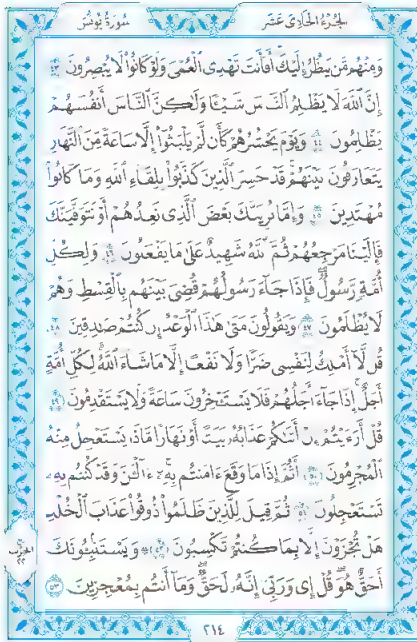 الجزء الحادى عشر سورة يونس
وَمِنْهُم مَّن يَنظُرُ إِلَيْكَ أَفَأَنتَ تَهْدِى الْعُمْىَ وَلَوْ كَانُوا لَا يُبْصِرُونَ ٤٣
إِنَّ اللَّهَ لَا يَظْلِمُ النَّاسَ شَيْئًا وَلَٰكِنَّ النَّاسَ أَنفُسَهُمْ
يَظْلِمُونَ ٤٤ وَيَوْمَ يَحْشُرُهُمْ كَأَن لَّمْ يَلْبَثُوا إِلَّا سَاعَةً مِّنَ النَّهَارِ
يَتَعَارَفُونَ بَيْنَهُمْ قَدْ خَسِرَ الَّذِينَ كَذَّبُوا بِلِقَاءِ اللَّهِ وَمَا كَانُوا
مُهْتَدِينَ ٤٥ وَإِمَّا نُرِيَنَّكَ بَعْضَ الَّذِى نَعِدُهُمْ أَوْ نَتَوَفَّيَنَّكَ
فَإِلَيْنَا مَرْجِعُهُمْ ثُمَّ اللَّهُ شَهِيدٌ عَلَىٰ مَا يَفْعَلُونَ ٤٦ وَلِكُلِّ
أُمَّةٍ رَّسُولٌ فَإِذَا جَاءَ رَسُولُهُمْ قُضِىَ بَيْنَهُم بِالْقِسْطِ وَهُمْ
لَا يُظْلَمُونَ ٤٧ وَيَقُولُونَ مَتَىٰ هَٰذَا الْوَعْدُ إِن كُنتُمْ صَٰدِقِينَ ٤٨
قُل لَّا أَمْلِكُ لِنَفْسِى ضَرًّا وَلَا نَفْعًا إِلَّا مَا شَاءَ اللَّهُ لِكُلِّ أُمَّةٍ
أَجَلٌ إِذَا جَاءَ أَجَلُهُمْ فَلَا يَسْتَـْٔخِرُونَ سَاعَةً وَلَا يَسْتَقْدِمُونَ ٤٩
قُلْ أَرَءَيْتُمْ إِنْ أَتَىٰكُمْ عَذَابُهُ بَيَٰتًا أَوْ نَهَارًا مَّاذَا يَسْتَعْجِلُ مِنْهُ
الْمُجْرِمُونَ ٥٠ أَثُمَّ إِذَا مَا وَقَعَ ءَامَنتُم بِهِ ءَالْـَٰٔنَ وَقَدْ كُنتُم بِهِ
تَسْتَعْجِلُونَ ٥١ ثُمَّ قِيلَ لِلَّذِينَ ظَلَمُوا ذُوقُوا عَذَابَ الْخُلْدِ
هَلْ تُجْزَوْنَ إِلَّا بِمَا كُنتُمْ تَكْسِبُونَ ٥٢ وَيَسْتَنۢبِـُٔونَكَ
أَحَقٌّ هُوَ قُلْ إِى وَرَبِّى إِنَّهُ لَحَقٌّ وَمَا أَنتُم بِمُعْجِزِينَ ٥٣
٢١٤